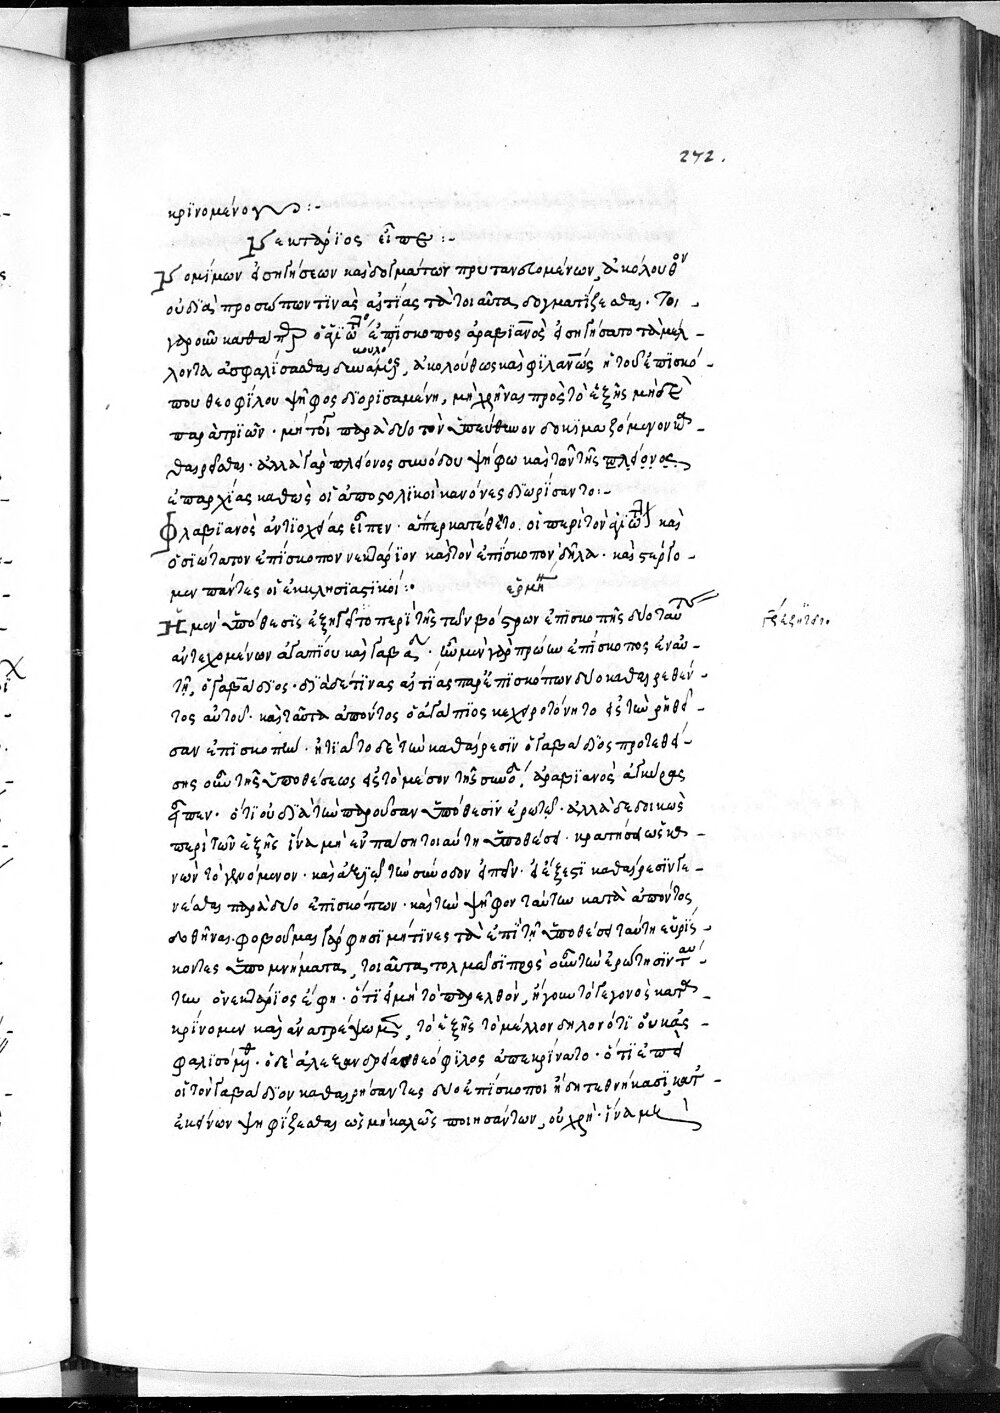 272.
κρινομένου :-
Νεκτάριος εἶπε :-
Νομίμων εἰσηγήσεων καὶ δογμάτων πρυτανευομένων, ἀκόλουθον
οὐ διὰ προσώπων τινὰς αἰτίας τὰ τοιαῦτα δογματίζεσθαι. Τοι-
γαροῦν καθάπερ ὁ ἁγιώ ἐπίσκοπος ἀραβιανὸς εἰσηγήσατο τὰ μέλ-
λοντα ἀσφαλίσασθαι ἀκολούθως καὶ φιλανῶς ἡ τοῦ ἐπισκό-
που θεοφίλου ψῆφος διορισαμένη, μὴ χρῆναι πρὸς τὸ ἑξῆς μηδὲ
παρὰ τριῶν. μή τοι παρὰ δύο τὸν ὑπεύθυνον δοκιμαζόμενον
θαιρεῖσθαι. ἀλλὰ γὰρ πλείονος συνόδου ψήφω καὶ τῶν τῆς πλείονος
ἐπαρχίας καθὼς οἱ ἀποστολικοὶ κανόνες διωρίσαντο :-
Φλαβιανὸς ἀντιοχείας εἶπεν. ἅπερ κατέθετο οἱ περὶ τὸν ἁγιώ καὶ
ὁσιώτατον ἐπίσκοπον νεκτάριον καὶ τὸν ἐπίσκοπον δῆλα. καὶ στέργο-
μεν πάντες οἱ ἐκκλησιαστικοί :- ἑρμη
Ἡ μὲν ὑπόθεσις ἐξηγεῖτο περὶ τῆς τῶν βόστρων ἐπισκοπῆς δύο ταύ
ἀντεχομένων ἀγαπίου καὶ γαβα. ὢν μὲν γὰρ πρώην ἐπίσκοπος ἐν αὐ-
τῇ, ὁ γαβάδιος. διὰ δέ τινας αἰτίας παρ' ἐπισκόπων δύο καθαιρεθέν-
τος αὐτοῦ. καὶ ταῦτα ἀπόντος ὁ ἀγάπιος κεχειροτόνητο εἰς τὴν ῥηθεῖ-
σαν ἐπισκοπήν. ᾐτιᾶτο δὲ τὴν καθαίρεσιν ὁ γαβάδιος προτεθεί-
σης οὖν τῆς ὑποθέσεως εἰς τὸ μέσον τῆς συνο, ἀραβιανὸς ἀγκύρας
εἶπεν. ὅτι οὐ διὰ τὴν παροῦσαν ὑπόθεσιν ἐρωτῶ. ἀλλὰ δεδοικὼς
περὶ τῶν ἑξῆς ἵνα μὴ ἐν πάση τοιαύτη ὑποθέσει. κρατήσει ὡς
νων τὸ γενόμενον. καὶ ἀξιῶ τὴν σύνοδον εἰπεῖν. εἰ ἔξεστι καθαίρεσιν γε-
νέσθαι παρὰ δύο ἐπισκόπων. καὶ τὴν ψῆφον ταύτην κατὰ ἀπόντος
δοθῆναι. φοβοῦμαι γάρ φησι μή τινες τὰ ἐπὶ τῇ ὑποθέσει ταύτη εὑρίσ-
κοντες ὑπομνήματα, τοιαῦτα τολμῶσι πρὸς οὖν τὴν ἐρώτησιν ταύ-
την ὁ νεκτάριος ἔφη. ὅτι εἰ μὴ τὸ παρελθὸν, ἤγουν τὸ γεγονὸς κατα-
κρίνομεν καὶ ἀνατρέψωμεν, τὸ ἑξῆς τὸ μέλλον δηλονότι οὐκ ἀσ-
φαλισόμεθα. ὁ δὲ ἀλεξανδρείας θεόφιλος ἀπεκρίνατο. ὅτι ἐπεὶ
οἱ τὸν γαβάδιον καθαιρήσαντες δύο ἐπίσκοποι ἤδη τεθνήκασι, κατ'
ἐκείνων ψηφίζεσθαι ὡς μὴ καλῶς ποιησάντων, οὐ χρή. ἵνα με